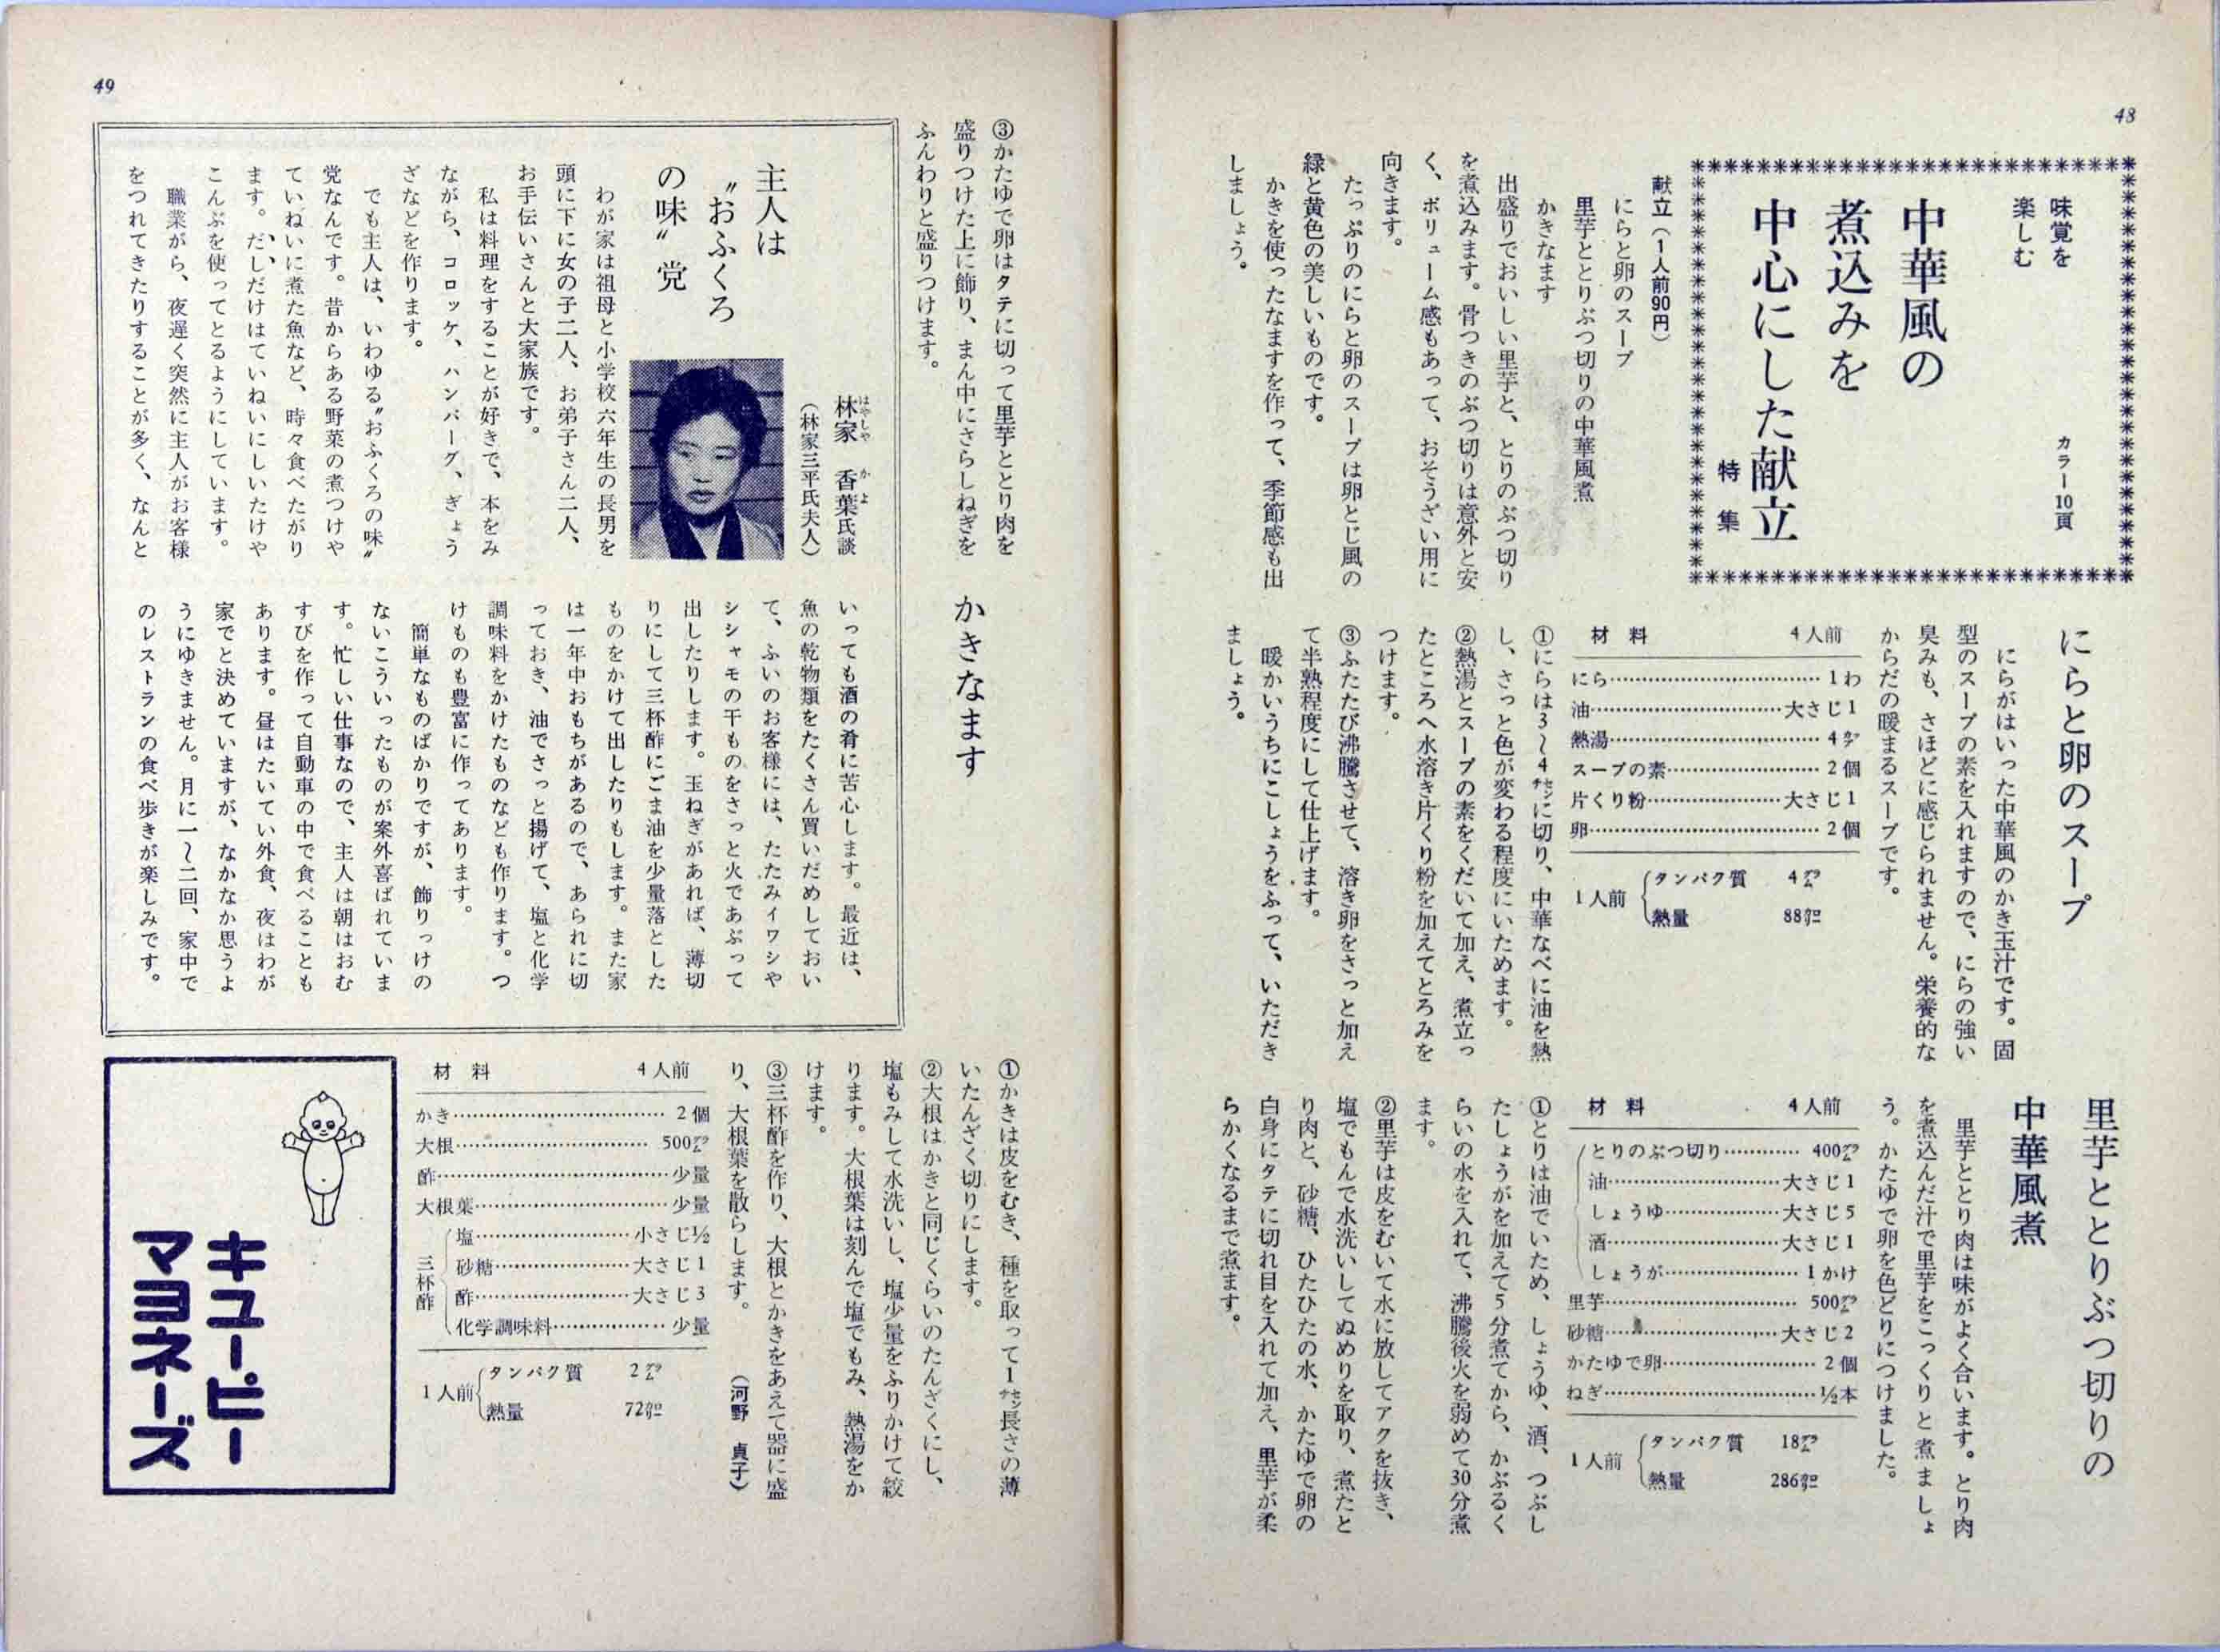 48
味覚を
楽しむ
カラー10頁
中華風の
煮込みを
中心にした献立
特集
献立（1人前90円）
にらと卵のスープ
里芋ととりぶつ切りの中華風煮
かきなます
出盛りでおいしい里芋と、とりのぶつ切り
を煮込みます。骨つきのぶつ切りは意外と安
く、ボリューム感もあって、おそうざい用に
向きます。
たっぷりのにらと卵のスープは卵とじ風の
緑と黄色の美しいものです。
かきを使ったなますを作って、季節感も出
しましょう。
にらと卵のスープ
にらがはいった中華風のかき玉汁です。固
型のスープの素を入れますので、にらの強い
臭みも、さほどに感じられません。栄養的な
からだの暖まるスープです。
材料 4人前
にら…………1わ
油…………大さじ1
熱湯…………4㌍
スープの素…………2個
片くり粉…………大さじ1
卵…………2個
1人前
タンパク質 4㌘
熱量 88㌍
①にらは3〜4㌢に切り、中華なべに油を熱
し、さっと色が変わる程度にいためます。
②熱湯とスープの素をくだいて加え、煮立っ
たところへ水溶き片くり粉を加えてとろみを
つけます。
③ふたたび沸騰させて、溶き卵をさっと加え
て半熟程度にして仕上げます。
暖かいうちにこしょうをふって、いただき
ましょう。
里芋ととりぶつ切りの
中華風煮
里芋ととり肉は味がよく合います。とり肉
を煮込んだ汁で里芋をこっくりと煮ましょ
う。かたゆで卵を色どりにつけました。
材料 4人前
とりのぶつ切り…………400㌘
油…………大さじ1
しょうゆ…………大さじ5
酒…………大さじ1
しょうが…………1かけ
里芋…………500㌘
砂糖…………大さじ2
かたゆで卵…………2個
ねぎ…………½本
1人前
タンパク質 18㌘
熱量 286㌍
①とりは油でいため、しょうゆ、酒、つぶし
たしょうがを加えて5分煮てから、かぶるく
らいの水を入れて、沸騰後火を弱めて30分煮
ます。
②里芋は皮をむいて水に放してアクを抜き、
塩でもんで水洗いしてぬめりを取り、煮たと
り肉と、砂糖、ひたひたの水、かたゆで卵の
白身にタテに切れ目を入れて加え、里芋が柔
らかくなるまで煮ます。
49
③かたゆで卵はタテに切って里芋ととり肉を
盛りつけた上に飾り、まん中にさらしねぎを
ふんわりと盛りつけます。
主人は
〝おふくろ
の味〟党
林家 香葉氏談
はやしや かよ
（林家三平氏夫人）
わが家は祖母と小学校六年生の長男を
頭に下に女の子二人、お弟子さん二人、
お手伝いさんと大家族です。
私は料理をすることが好きで、本をみ
ながら、コロッケ、ハンバーグ、ぎょう
ざなどを作ります。
でも主人は、いわゆる〝おふくろの味〟
党なんです。昔からある野菜の煮つけや
ていねいに煮た魚など、時々食べたがり
ます。だしだけはていねいにしいたけや
こんぶを使ってとるようにしています。
職業がら、夜遅く突然に主人がお客様
をつれてきたりすることが多く、なんと
いっても酒の肴に苦心します。最近は、
魚の乾物類をたくさん買いだめしておい
て、ふいのお客様には、たたみイワシや
シシャモの干ものをさっと火であぶって
出したりします。玉ねぎがあれば、薄切
りにして三杯酢にごま油を少量落とした
ものをかけて出したりもします。また家
は一年中おもちがあるので、あられに切
っておき、油でさっと揚げて、塩と化学
調味料をかけたものなども作ります。つ
けものも豊富に作ってあります。
簡単なものばかりですが、飾りっけの
ないこういったものが案外喜ばれていま
す。忙しい仕事なので、主人は朝はおむ
すびを作って自動車の中で食べることも
あります。昼はたいてい外食、夜はわが
家でと決めていますが、なかなか思うよ
うにゆきません。月に一〜二回、家中で
のレストランの食べ歩きが楽しみです。
かきなます
①かきは皮をむき、種を取って1㌢長さの薄
いたんざく切りにします。
②大根はかきと同じくらいのたんざくにし、
塩もみして水洗いし、塩少量をふりかけて絞
ります。大根葉は刻んで塩でもみ、熱湯をか
けます。
③三杯酢を作り、大根とかきをあえて器に盛
り、大根葉を散らします。
（河野 貞子）
材料 4人前
かき…………2個
大根…………500㌘
酢…………少量
大根葉…………少量
三杯酢
塩…………小さじ½
砂糖…………大さじ1
酢…………大さじ3
化学調味料…………少量
1人前
タンパク質 2㌘
熱量 72㌍
キユーピー
マヨネーズ